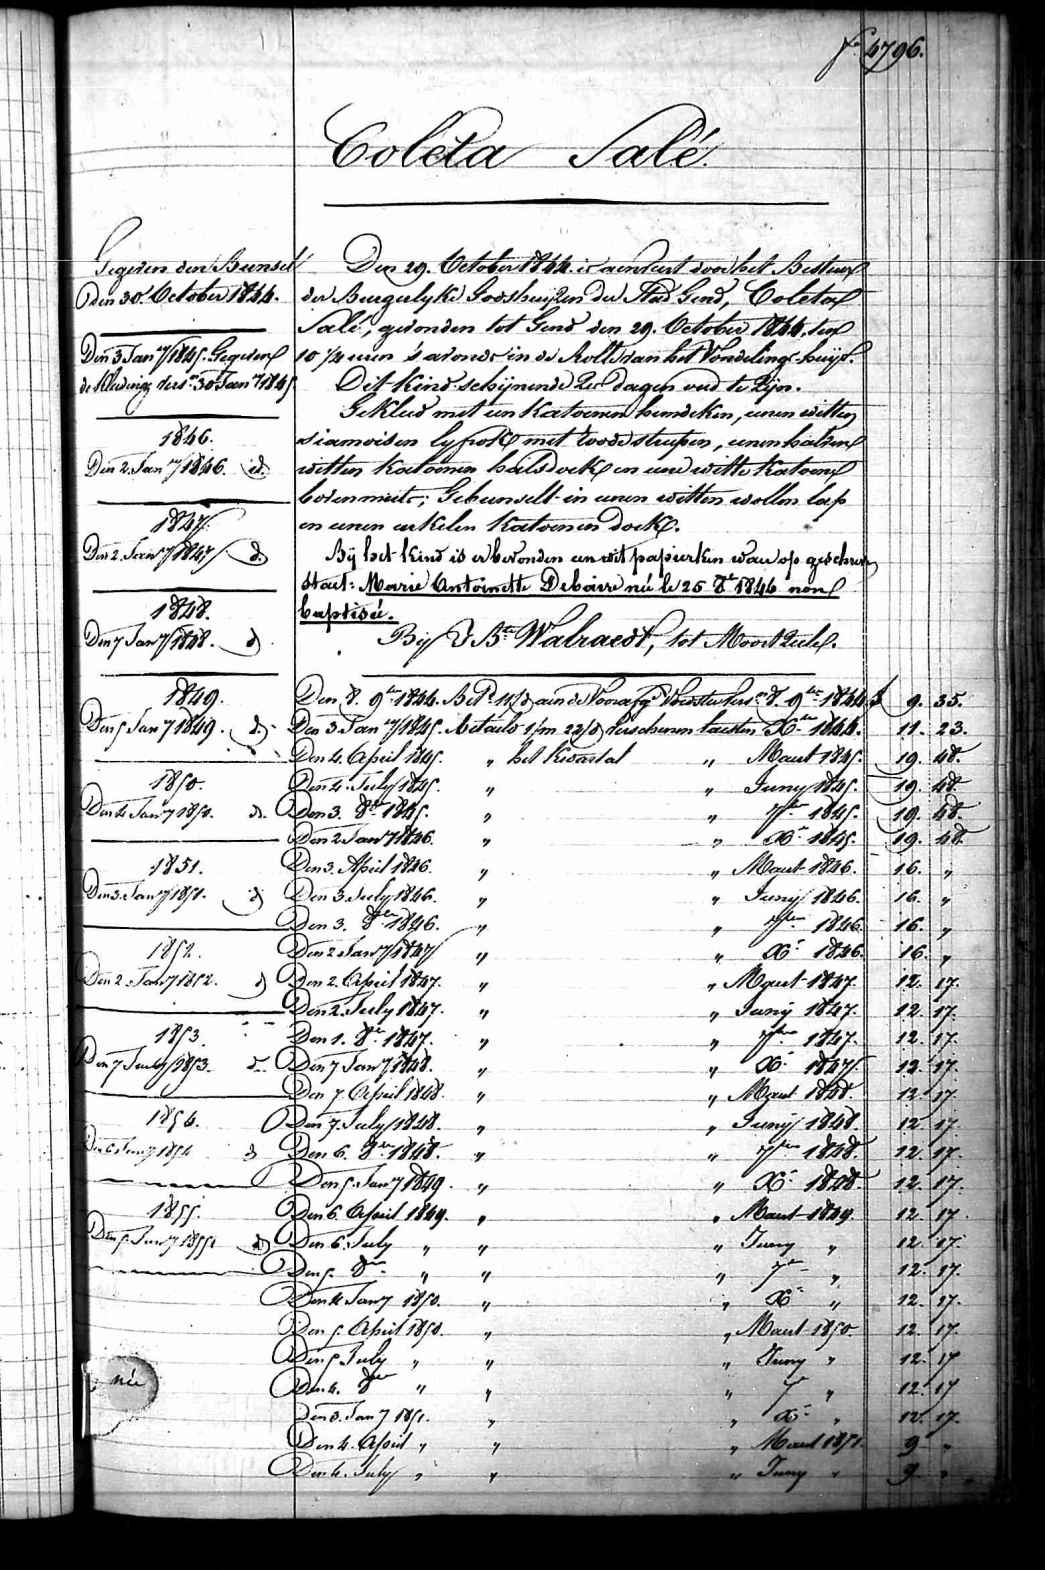 f° 4796.
Coleta Salé.
Gegeven den Bunsel
den 30. October 1844.
Den 3 Jan.ry 1845. Gegeven
de Kleeding vers. 30 Jan.ry 1845
1846.
Den 2. Jan.ry 1846. id.
1847.
Den 2. Jan.ry 1847 d.
1848.
Den 7 Jan.ry 1848. d.
1849.
Den 5 Jan.ry 1849. d.
1850.
Den 4 Jan.ry 1850. d.
1851.
Den 3. Jan.ry 1851. d
1852.
Den 2. Jan.ry 1852. d
1853.
Den 7 January 1853. d.
1854.
Den 6 Jan.ry 1854 d
1855.
Den 5. Jan.ry 1855 d
née
Den 29. October 1844. is aenveert door het Bestuer
der Burgerlyke Godshuyzen der Stad Gend, Coleta
Salé, gevonden tot Gend den 29. October 1844, ten
10 1/4 uren 's avonds in de Rolle van het Vondelings-huys.
Dit Kind schynende dagen oud te zyn.
Gekleed met een katoenen hemdeken, eenen witten
siamoisen lyfrok met roode strepen, eenen halven
witten katoenen halsdoek en eene witte katoene
bovenmuts; Gebunselt in eenen witten wollen lap
en eenen enkelen katoenen doek.
Bÿ het kind is er bevonden een wit papierken waer op geschreven
staet: Marie Antoinette Debaire née le 25 8.e 1846 non
baptisée.
Bÿ J. B.te Walraedt, tot Moortzeele.
Den 8. 9.bre 1844. Bet.d 11/3 aen de Voorafg. Voedster vers. 8. 9.bre 1844 f 9. 35.
Den 3 Jan.ry 1845. betaelt 1/m 22/d verschenen laetsten X.bre 1844. 11. 23.
Den 4. April 1845. " het kwartal " Maert 1845. 19. 48.
Den 4. July 1845. " " Juny 1845. 19. 48.
Den 3. 8.bre 1845. " " 7.bre 1845. 19. 48.
Den 2 Jan.ry 1846. " " X.bre 1845. 19. 48.
Den 3. April 1846. " " Maert 1846. 16. "
Den 3. July 1846. " " Juny 1846. 16. "
Den 3. 8.bre 1846. " " 7.bre 1846. 16. "
Den 2 Jan.ry 1847 " " X.bre 1846. 16. "
Den 2. April 1847. " " Maert 1847. 12. 17.
Den 2. July 1847. " " Juny 1847. 12. 17.
Den 1. 8.bre 1847. " " 7.bre 1847. 12. 17.
Den 7 Jan.ry 1848. " " X.bre 1847. 12. 17.
Den 7. April 1848. " " Maert 1848. 12. 17
Den 7. July 1848. " " Juny 1848. 12. 17.
Den 6. 8.bre 1848. " " 7.bre 1848. 12. 17.
Den 5. Jan.ry 1849. " " X.bre 1848. 12. 17.
Den 6. April 1849. " " Maert 1849. 12. 17.
Den 6. July " " " Juny " 12. 17.
Den 5. 8.bre " " " 7.bre " 12. 17.
Den 4 Jan.ry 1850. " " X.bre " 12. 17.
Den 5. April 1850. " " Maert 1850. 12. 17.
Den 5 July " " " Juny " 12. 17
Den 4. 8.bre " " " 7.bre " 12. 17
Den 3. Jan.ry 1851. " " X.bre " 12. 17.
Den 4. April " " " Maert 1851. 9 "
Den 4. July " " " Juny " 9 "